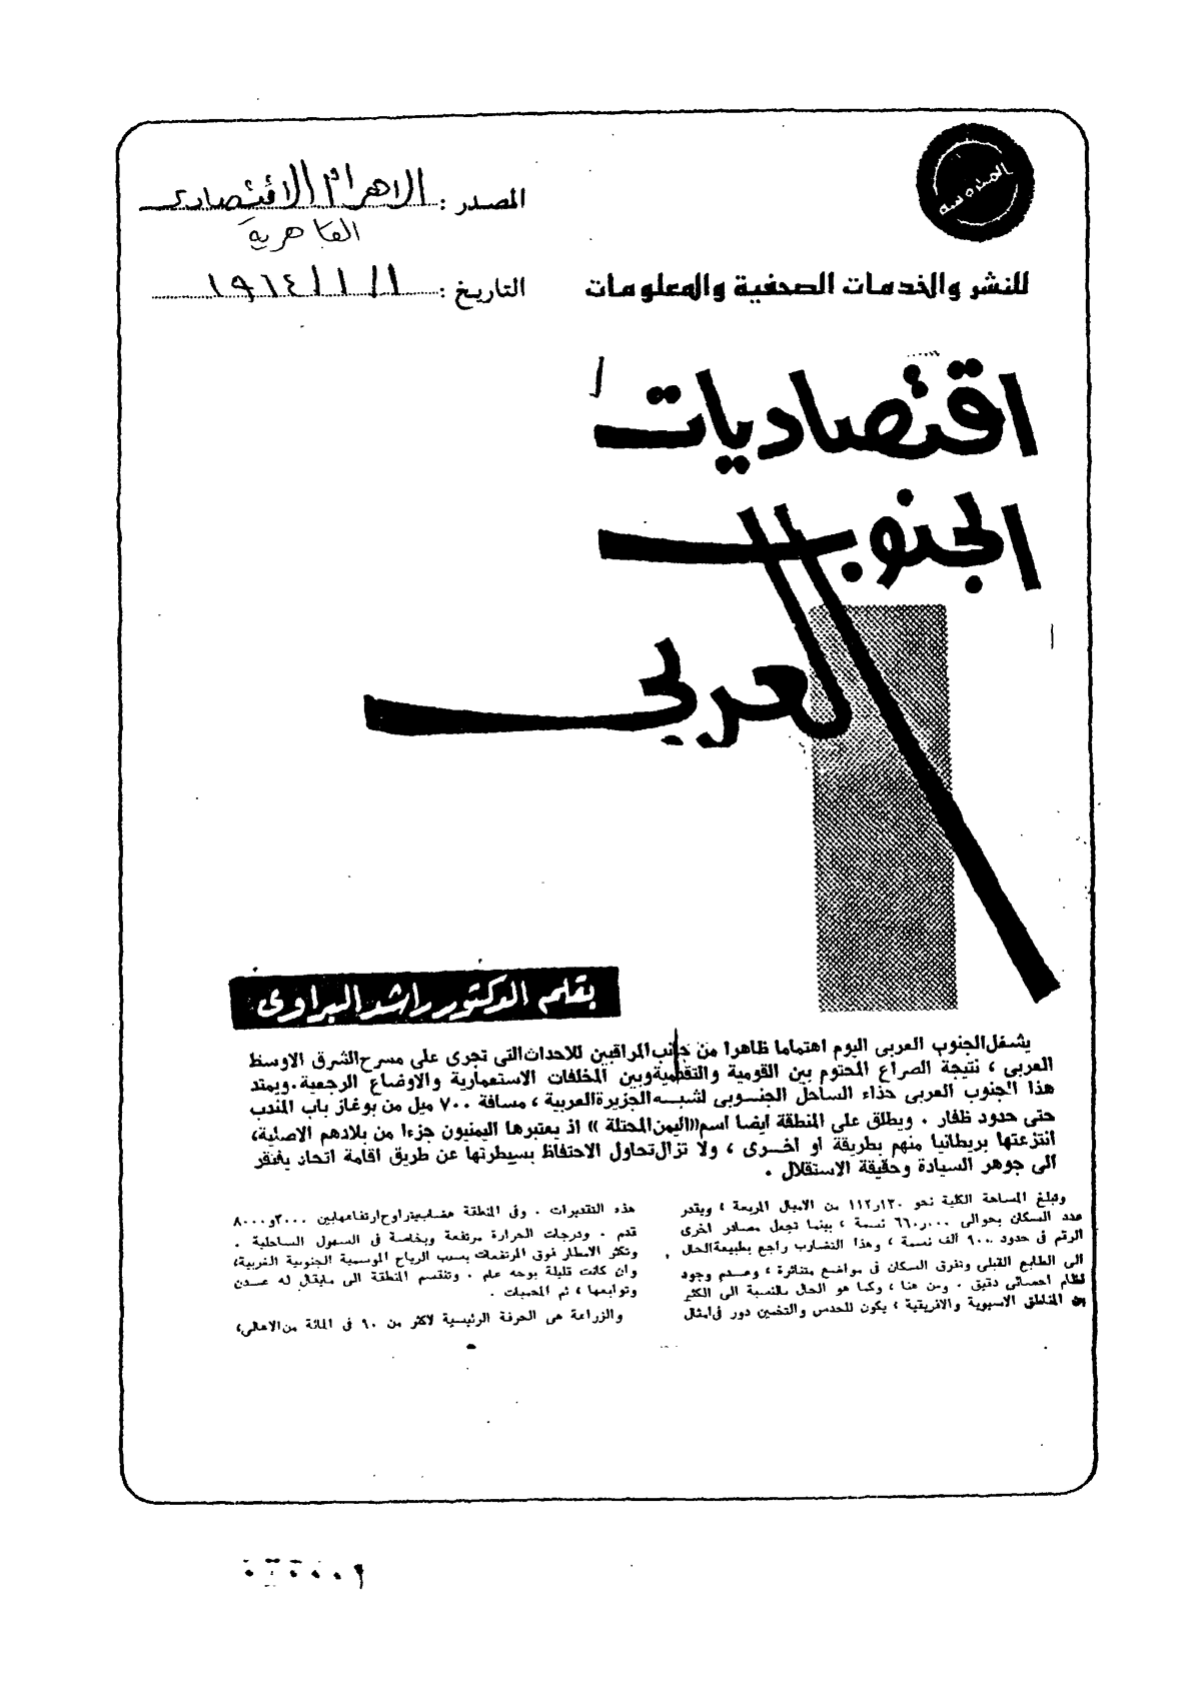 المصدر : الاهرام الاقتصادى
القاهرية
التاريخ : ١ / ١ / ١٩٦٤
للنشر والخدمات الصحفية والمعلومات
اقتصاديات
الجنوب
العربى
بقلم الدكتور راشد البراوى
يشغل الجنوب العربى اليوم اهتماما ظاهرا من جانب المراقبين للاحداث التى تجرى على مسرح الشرق الاوسط
العربى ، نتيجة الصراع المحتوم بين القومية والتقدمية وبين المخلفات الاستعمارية والاوضاع الرجعية . ويمتد
هذا الجنوب العربى حذاء الساحل الجنوبى لشبه الجزيرة العربية ، مسافة ٧٠٠ ميل من بوغاز باب المندب
حتى حدود ظفار . ويطلق على المنطقة ايضا اسم (( اليمن المحتلة )) اذ يعتبرها اليمنيون جزءا من بلادهم الاصلية ،
انتزعتها بريطانيا منهم بطريقة او اخرى ، ولا تزال تحاول الاحتفاظ بسيطرتها عن طريق اقامة اتحاد يفتقر
الى جوهر السيادة وحقيقة الاستقلال .
وتبلغ المساحة الكلية نحو ١١٢٫١٣٠ من الاميال المربعة ، ويقدر
عدد السكان بحوالى ٦٦٠٫٠٠٠ نسمة ، بينما تجعل مصادر اخرى
الرقم فى حدود ٩٠٠ الف نسمة ، وهذا التضارب راجع بطبيعة الحال
الى الطابع القبلى وتفرق السكان فى مواضع متناثرة ، وعدم وجود
نظام احصائى دقيق . ومن هنا ، وكما هو الحال بالنسبة الى الكثير
من المناطق الاسيوية والافريقية ، يكون للحدس والتخمين دور فى امثال
هذه التقديرات . وفى المنطقة هضاب يتراوح ارتفاعها بين ٣٠٠٠ و ٨٠٠٠
قدم . ودرجات الحرارة مرتفعة وبخاصة فى السهول الساحلية .
وتكثر الامطار فوق المرتفعات بسبب الرياح الموسمية الجنوبية الغربية ،
وان كانت قليلة بوجه عام . وتنقسم المنطقة الى مايقال له عدن
وتوابعها ، ثم المحميات .
والزراعة هى الحرفة الرئيسية لاكثر من ٩٠ فى المائة من الاهالى ،